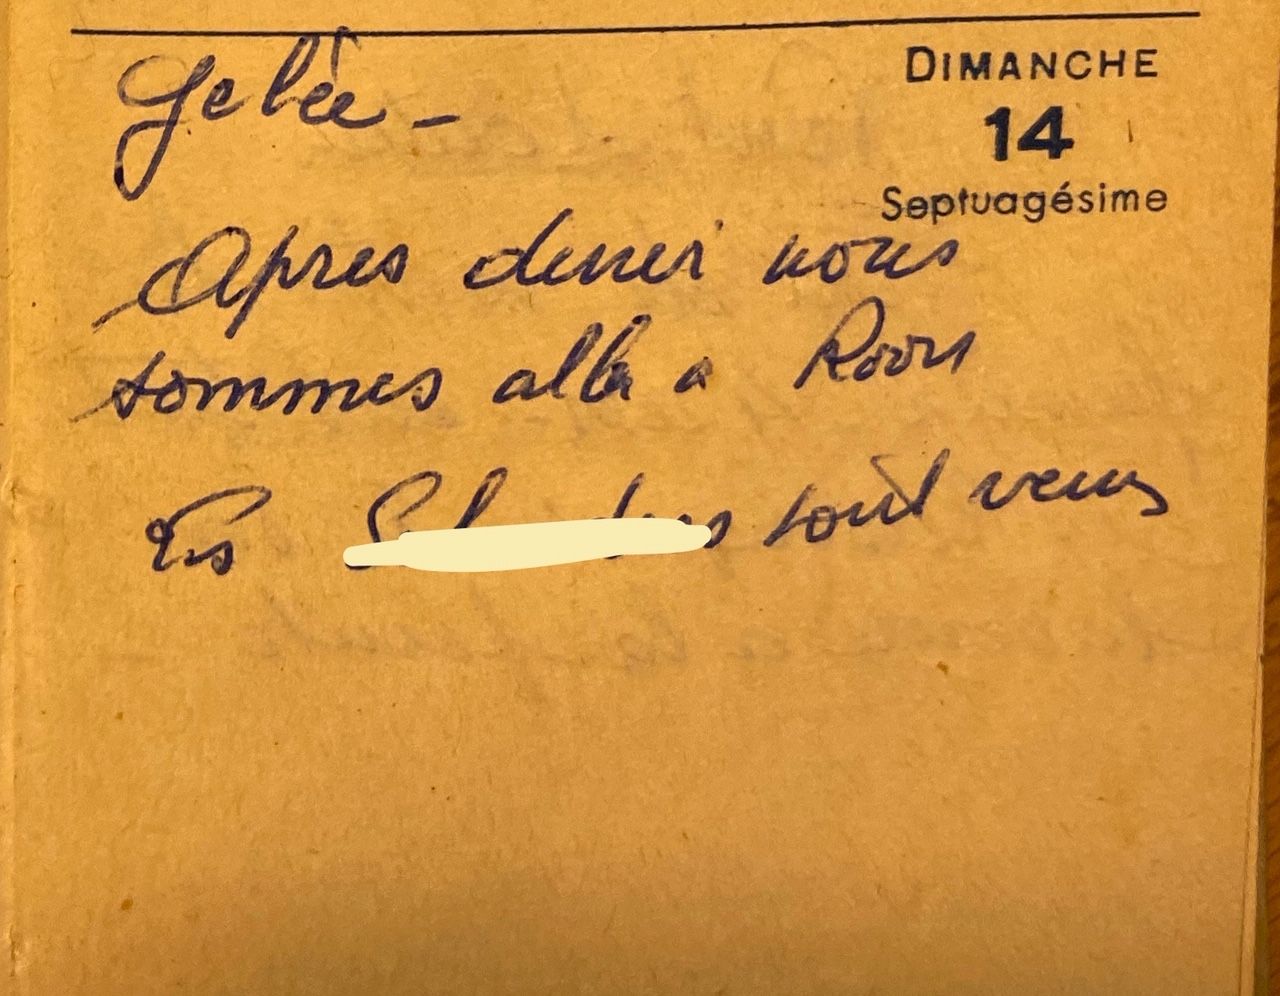 DIMANCHE
14
Septuagésime
Gelée -
Apres diner nous
sommes allé a
sont venus